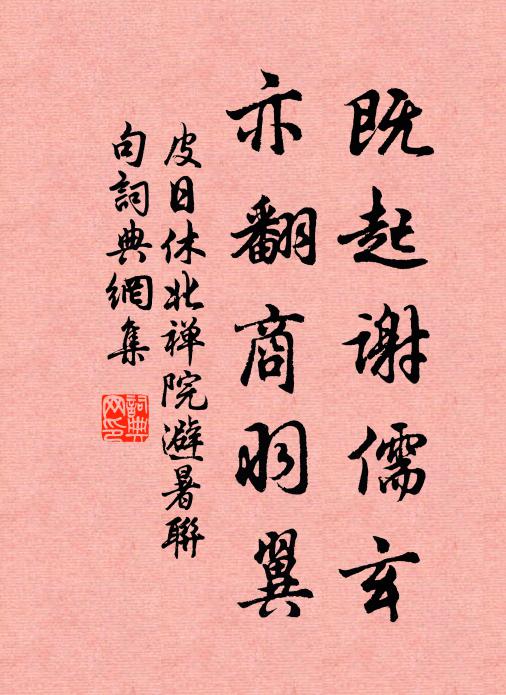 既起谢儒玄
亦翻商羽翼
皮日休北禅院避暑聯
句詞典網集
詞典网印